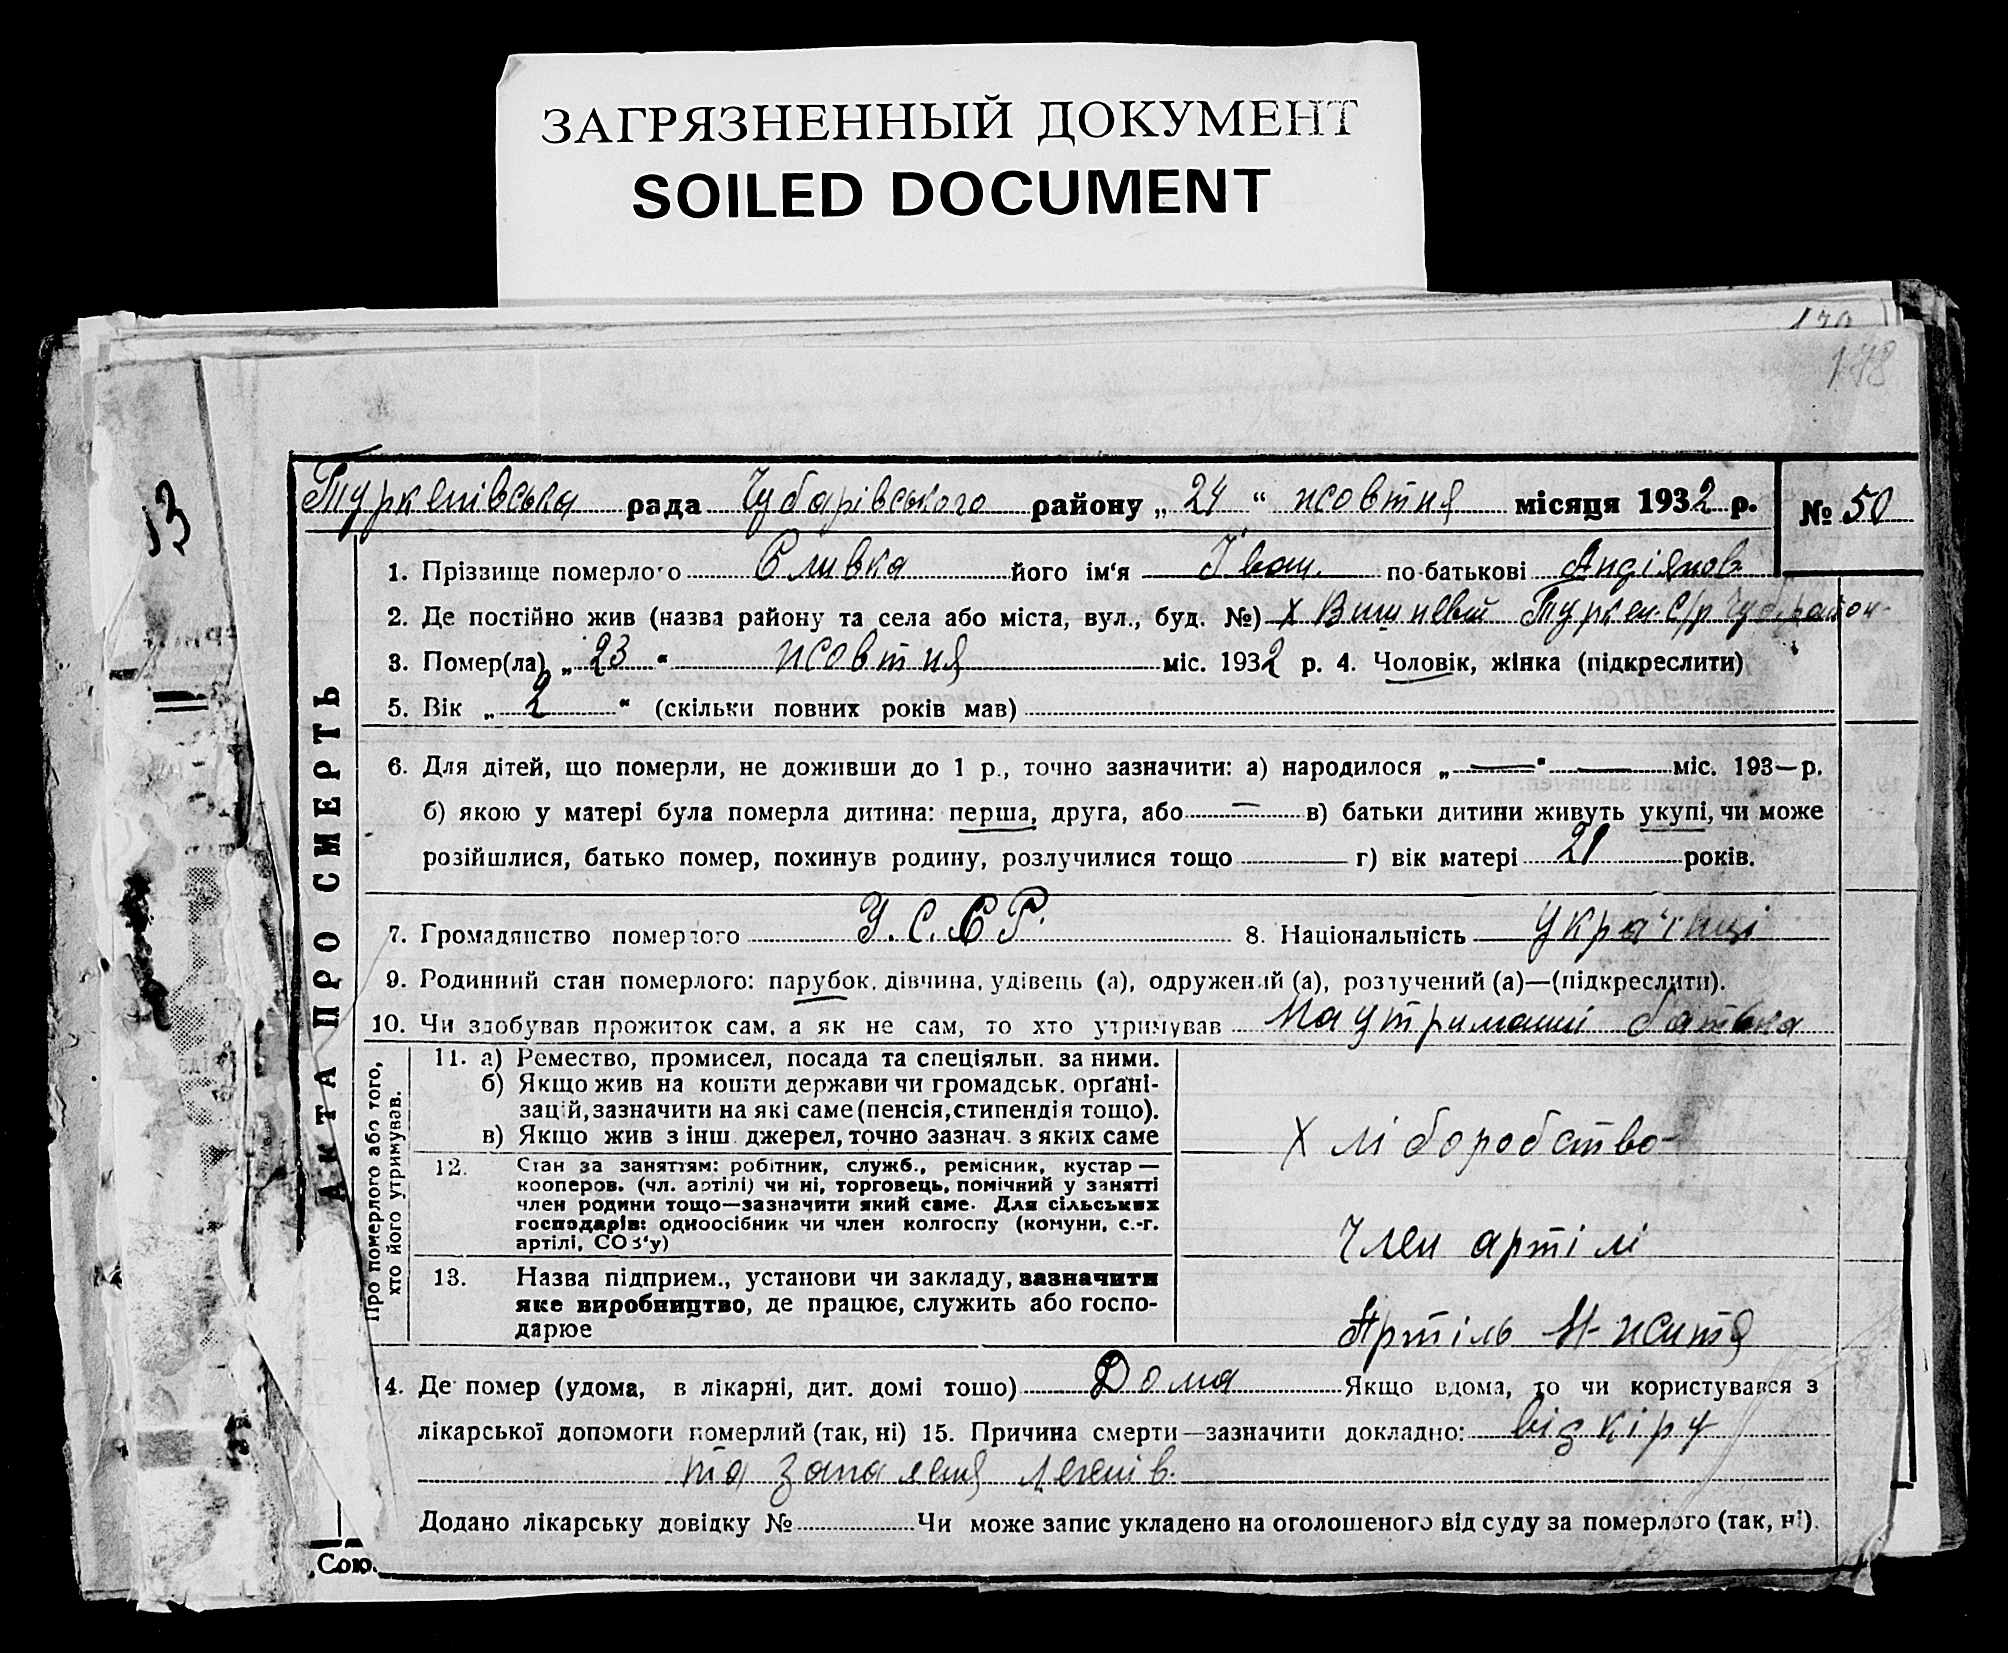 ЗАГРЯЗНЕННЫЙ ДОКУМЕНТ
SOILED DOCUMENT
178
13
Туркенівська рада Чубарівського району „ 24 “ жовтня місяця 1932 р. № 50
АКТА ПРО СМЕРТЬ
1. Прізвище померлого Сливка його ім‘я Іван. по-батькові Андіянов
2. Де постійно жив (назва району та села або міста, вул., буд. №) х Вишневий Туркен. с/р Чуб. район
3. Помер(ла) „ 23 “ жовтня міс. 1932 р. 4. Чоловік, жінка (підкреслити)
5. Вік „ 2 “ (скільки повних років мав)
6. Для дітей, що померли, не доживши до 1 р., точно зазначити: а) народилося „ — “ — міс. 193—р.
б) якою у матері була померла дитина: перша, друга, або — в) батьки дитини живуть укупі, чи може
розійшлися, батько помер, покинув родину, розлучилися тощо — г) вік матері 21 років.
7. Громадянство померлого У.С.С.Р. 8. Національність Українці
9. Родинний стан померлого: парубок, дівчина, удівець (а), одружений (а), розлучений (а)—(підкреслити).
10. Чи здобував прожиток сам, а як не сам, то хто утримував На утриманні батька
Про померлого або того,
хто його утримував.
11. а) Ремество, промисел, посада та спеціяльн. за ними.
б) Якщо жив на кошти держави чи громадськ. органі-
зацій, зазначити на які саме (пенсія, стипендія тощо).
в) Якщо жив з інш. джерел, точно зазнач. з яких саме
Хліборобство
12. Стан за заняттям: робітник, служб., ремісник, кустар —
кооперов. (чл. артілі) чи ні, торговець, помічний у занятті
член родини тощо—зазначити який саме. Для сільських
господарів: одноосібник чи член колгоспу (комуни, с.-г.
артілі, СОЗ‘у)
Член артілі
13. Назва підприєм., установи чи закладу, зазначити
яке виробництво, де працює, служить або госпо-
дарює
Артіль Н-життя
14. Де помер (удома, в лікарні, дит. домі тощо) Дома Якщо вдома, то чи користувався з
лікарської допомоги померлий (так, ні) 15. Причина смерти—зазначити докладно: від кіру
та запалення легенів.
Додано лікарську довідку № Чи може запис укладено на оголошеного від суду за померлого (так, ні).
Сою